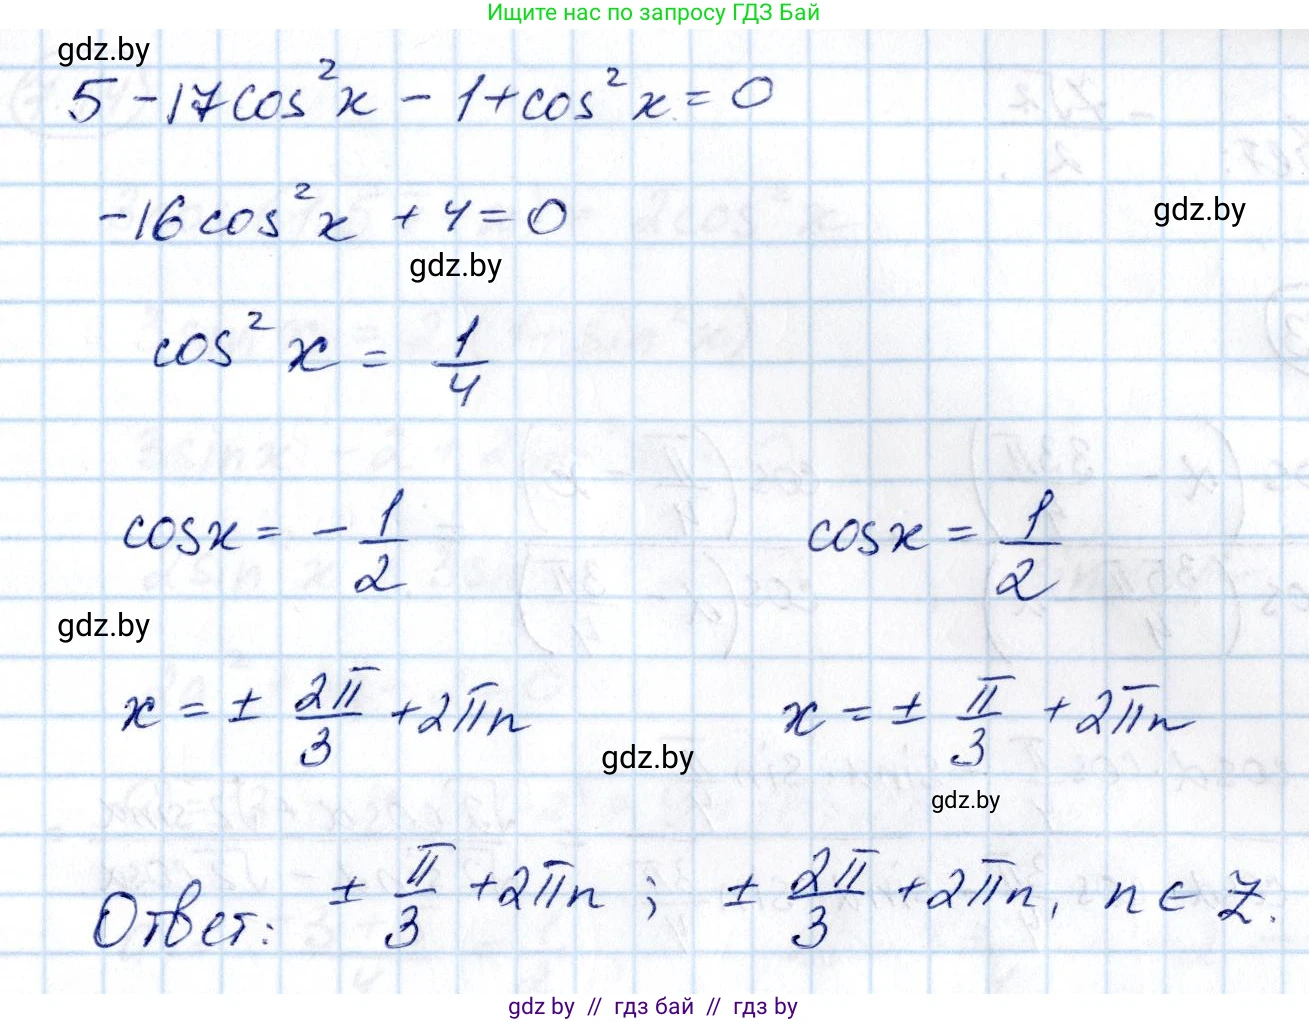 Ищите нас по запросу ГДЗ Бай
gdz.by
5 - 17cos²x - 1 + cos²x = 0
-16cos²x + 4 = 0
gdz.by
gdz.by
cos²x = 1/4
cosx = - 1/2 cosx = 1/2
gdz.by
x = ± 2π/3 + 2πn x = ± π/3 + 2πn
gdz.by
gdz.by
Ответ: ± π/3 + 2πn ; ± 2π/3 + 2πn, n ∈ Z.
gdz.by // гдз бай // гдз by